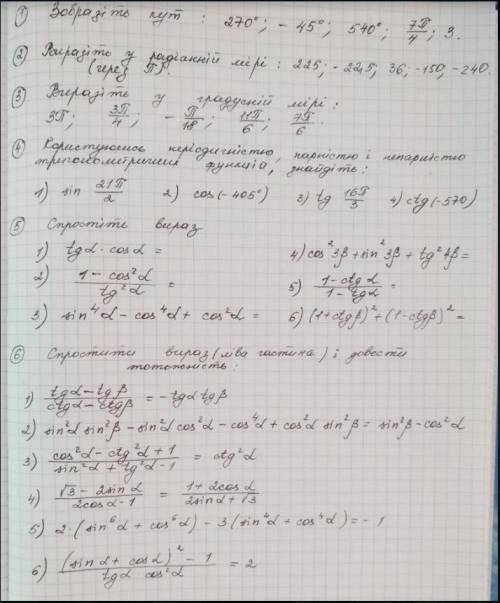 ① Зобразіть кут : 270°; - 45°; 540°; 7π/4; 3.
② Виразіть у радіанній мірі : 225; - 225; 36; -150; -240.
(через π).
③ Виразіть у градусній мірі :
3π; 3π/4; - π/18; 11π/6; 7π/6.
④ Користуючись періодичністю, парністю і непарністю
тригонометричних функцій, знайдіть :
1) sin 21π/2 2) cos(-405°) 3) tg 16π/3 4) ctg(-570)
⑤ Спростіть вираз
1) tgα · cosα =
4) cos²3β + sin²3β + tg²4β =
2) (1 - cos²α)/(tg²α) =
5) (1 - ctgα)/(1 - tgα) =
3) sin⁴α - cos⁴α + cos²α =
6) (1+ctgβ)² + (1-ctgβ)² =
⑥ Спростити вираз (ліва частина) і довести
тотожність :
1) (tgα - tgβ)/(ctgα - ctgβ) = - tgα tgβ
2) sin²α sin²β - sin²α cos²α - cos⁴α + cos²α sin²β = sin²β - cos²α
3) (cos²α - ctg²α + 1)/(sin²α + tg²α - 1) = ctg²α
4) (√3 - 2sinα)/(2cosα - 1) = (1 + 2cosα)/(2sinα + √3)
5) 2·(sin⁶α + cos⁶α) - 3(sin⁴α + cos⁴α) = - 1
6) ((sinα + cosα)² - 1)/(tgα cos²α) = 2